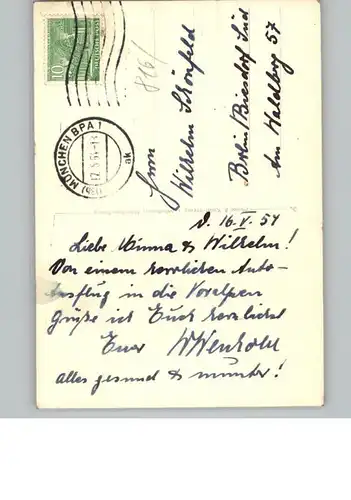 10
816/
MÜNCHEN BPA 1
17.5.54.-13
ak
Herrn
Wilhelm Schönfeld
Berlin/Biesdorf Süd
Am Waldberg 57
d. 16.V.54
Liebe Minna & Wilhelm!
Von einem herrlichen Auto-
Ausflug in die Voralpen
grüße ich Euch herzlichst
Euer
alles gesund & munter!